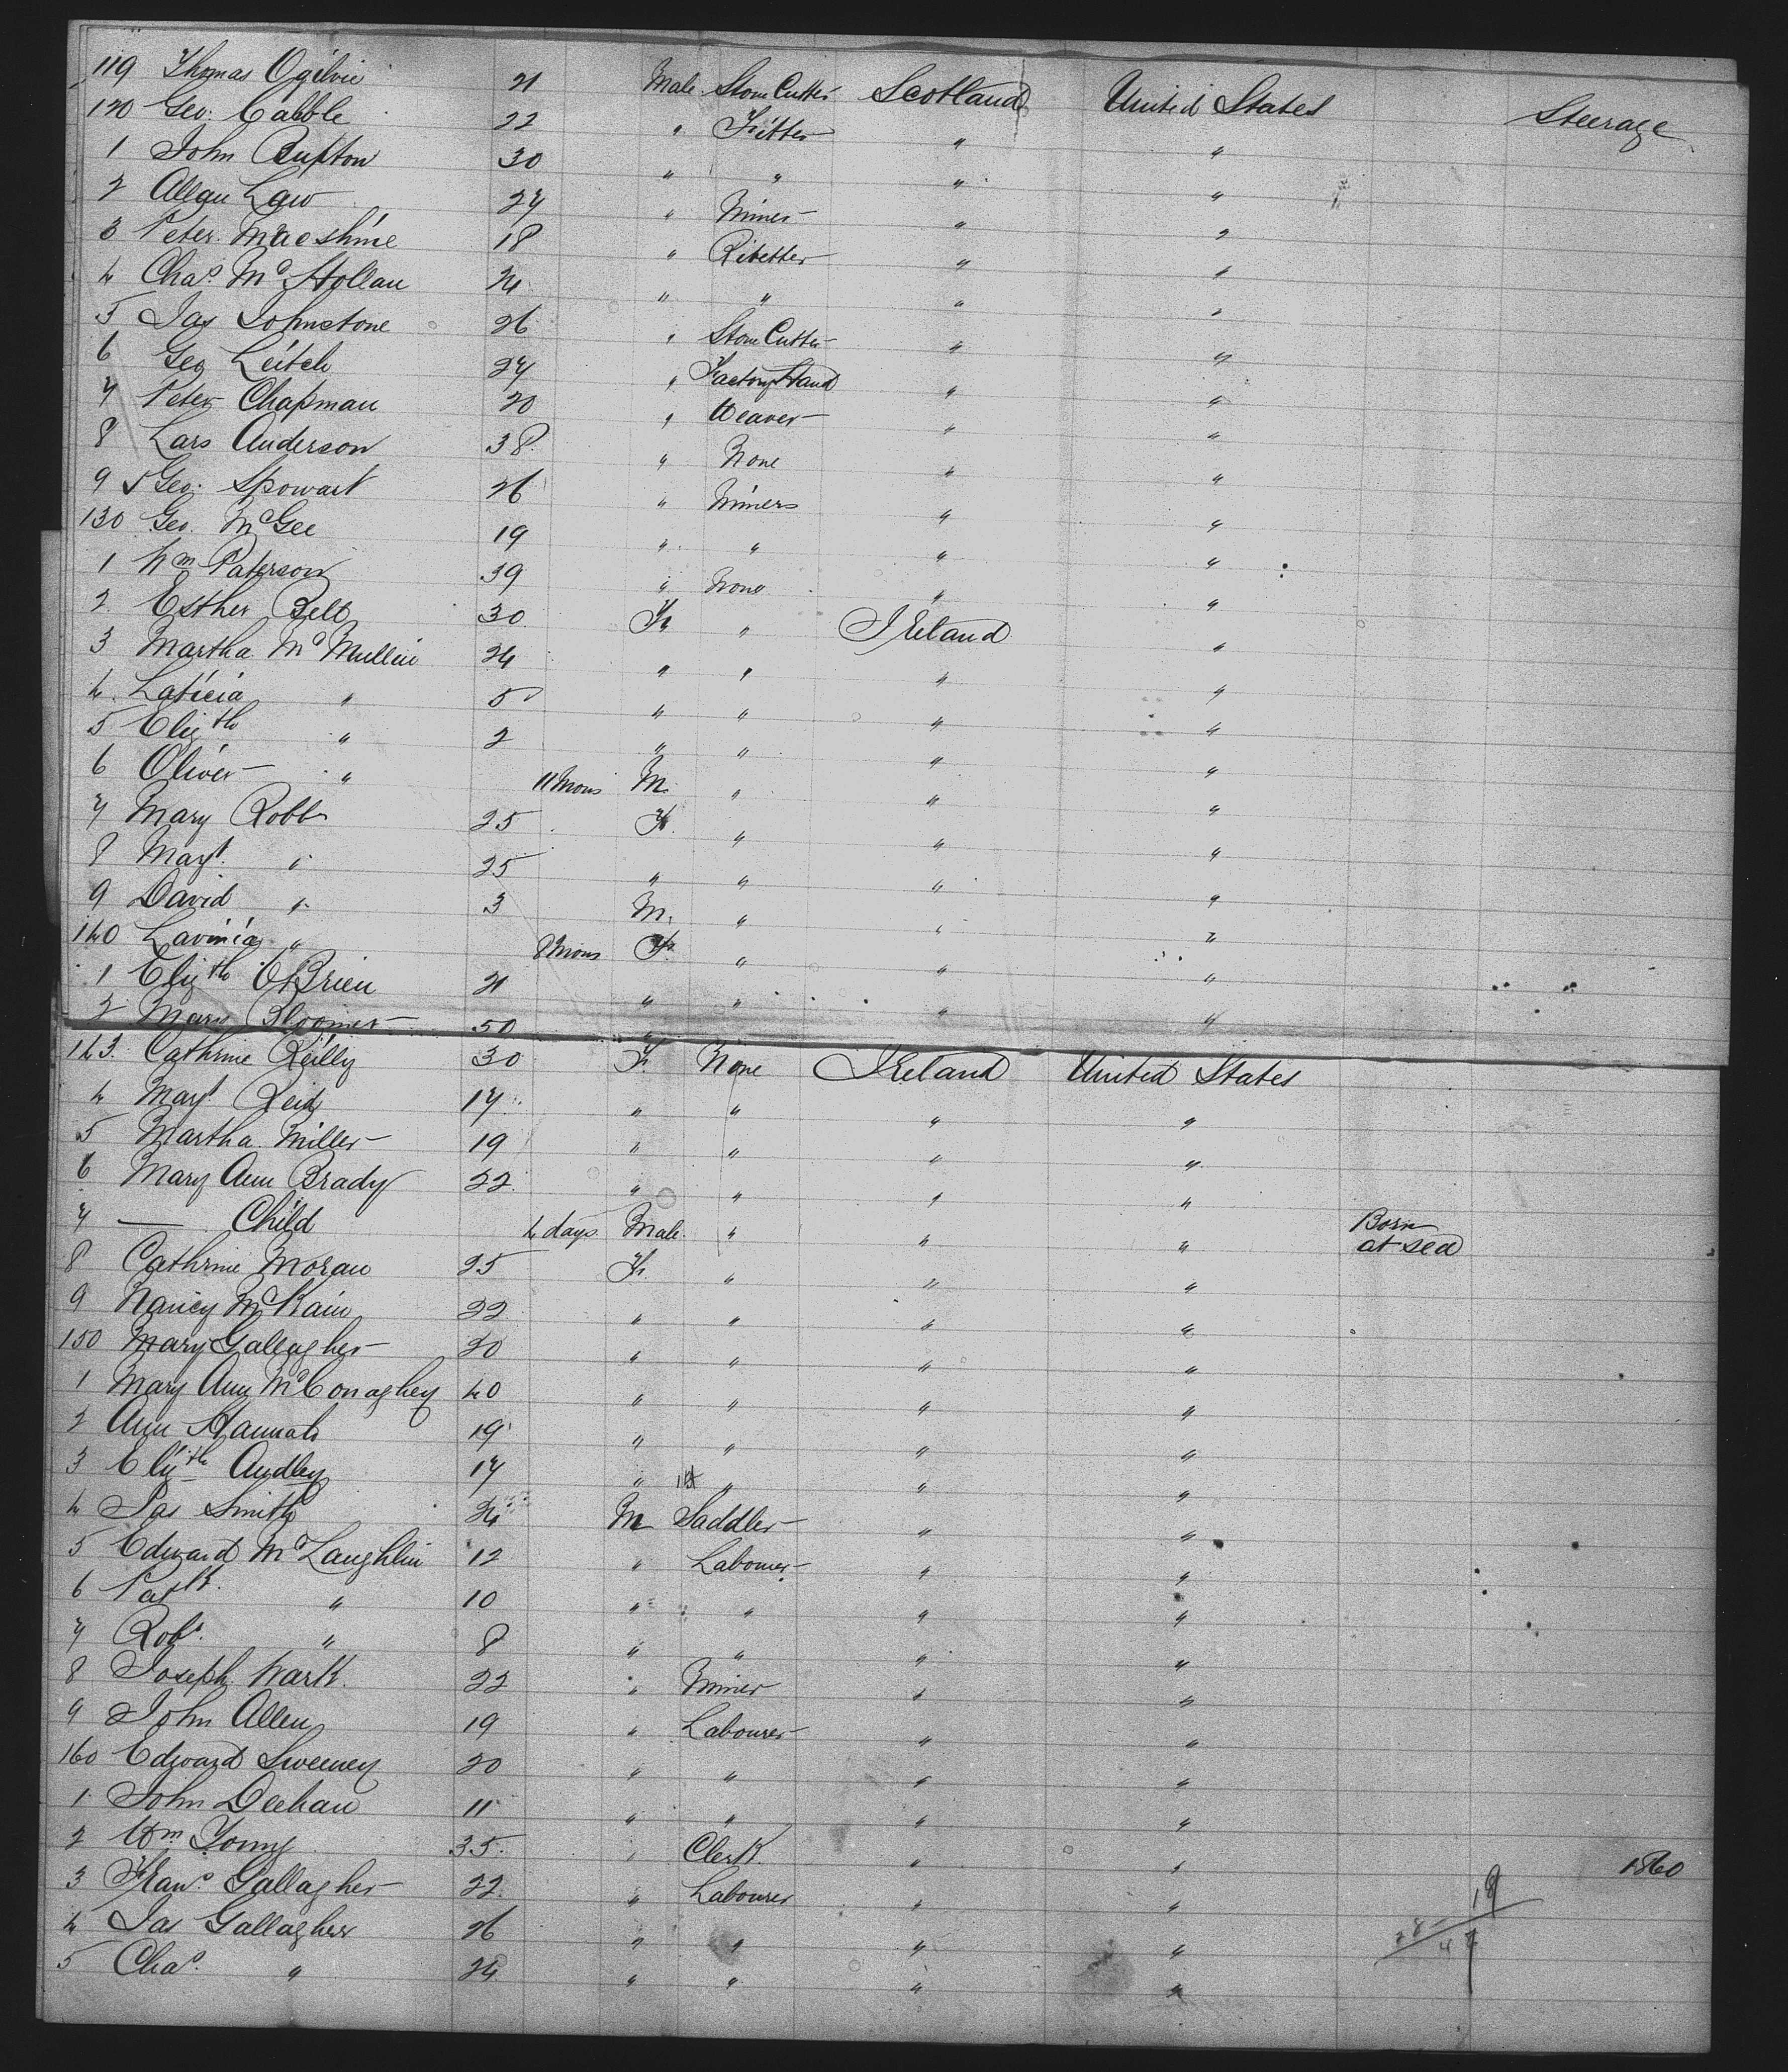 119 Thomas Ogilvie 21 Male Stone Cutter Scotland United States Steerage
120 Geo: Cabble 22 " Fitter " "
1 John Bupton 30 " " " "
2 Allan Law 27 " Miner " "
3 Peter 18 " Rivetter " "
4 Chas. McHollan 24 " " " "
5 Jas Johnstone 26 " Stone Cutter " "
6 Geo Leitch 27 " Factory Hand " "
7 Peter Chapman 20 " Weaver " "
8 Lars Anderson 38 " None " "
9 Geo: Spowart 26 " Miners " "
130 Geo. McGee 19 " " " "
1 Wm Paterson 39 " None " "
2 Esther Bell 30 F. " Ireland "
3 Martha McMullin 24 " " " "
4 Laticia " 5 " " " "
5 Elizth " 2 " " " "
6 Oliver " 11 Mons M. " " "
7 Mary Robb 25 F. " " "
8 Margt. " 25 " " " "
9 David " 3 M. " " "
140 Lavinia " 8 Mons F. " " "
1 Elizth O'Brien 21 " " " "
2 Mary Bloomer 50 "
143. Cathrine Reilly 30 F. None Ireland United States
4 Margt Reid 17 " " " "
5 Martha Miller 19 " " " "
6 Mary Ann Brady 22 " " " "
7 — Child 4 days Male " " " Born at sea
8 Cathrine Moran 25 F. " " "
9 Nancy McKain 22 " " " "
150 Mary Gallagher 20 " " " "
1 Mary Ann McConaghey 40 " " " "
2 Ann Hannah 19 " " " "
3 Elizth Audley 17 " " " "
4 Jas Smith 24 M Saddler " "
5 Edward McLaughlin 12 " Labourer " "
6 Patk. " 10 " " " "
7 Robt. " 8 " " " "
8 Joseph Wark. 22 " Miner " "
9 John Allen 19 " Labourer " "
160 Edward Sweeney 20 " " " "
1 John Deehan 11 " " " "
2 Wm Young 35 " Clerk " " 1860
3 Frans. Gallagher 22 " Labourer " "
4 Jas Gallagher 26 " " " "
5 Chas. " 24 " " " "